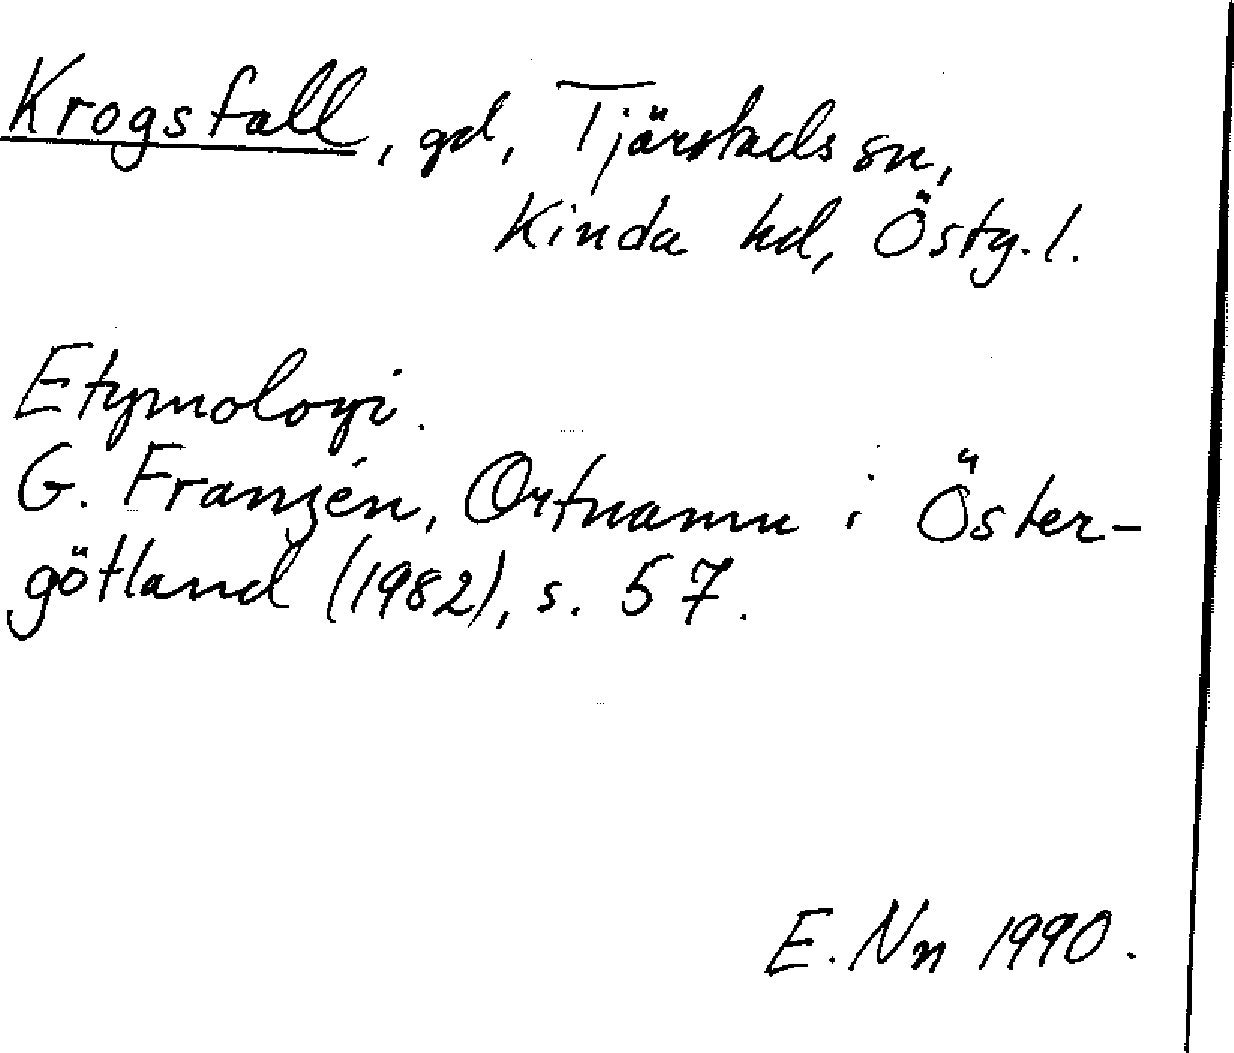 Krogsfall, gd, Tjärstads sn,
Kinda hd, Östg. l.
Etymologi.
G. Franzén, Ortnamn i Öster-
götland (1982), s. 57.
E. Nn 1990.